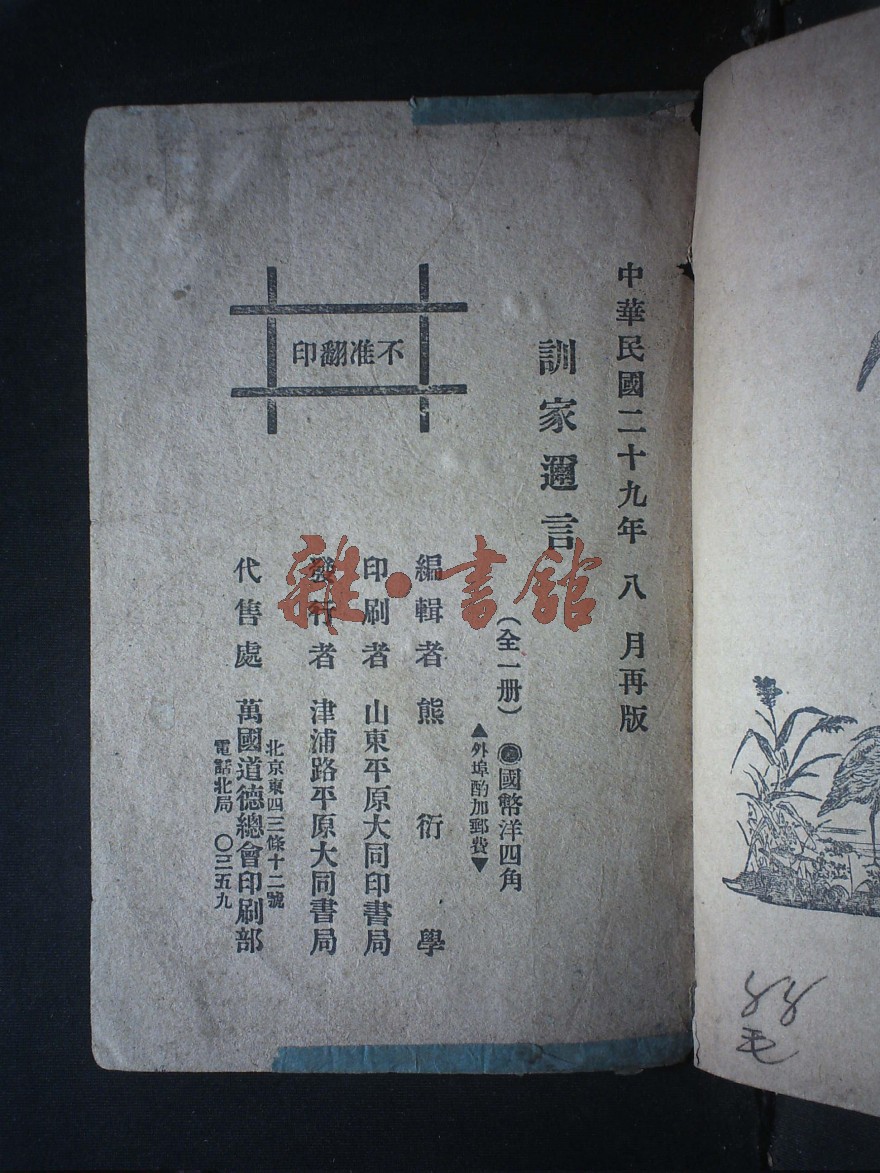 中華民國二十九年 八 月再版
訓家邇言
（全一册） 國幣洋四角
▲外埠酌加郵費▼
編輯者 熊衍學
印刷者 山東平原大同印書局
發行者 津浦路平原大同書局
代售處 萬國道德總會印刷部
北京東四三條十二號
電話北局 〇三五九
不准翻印
雜·書館